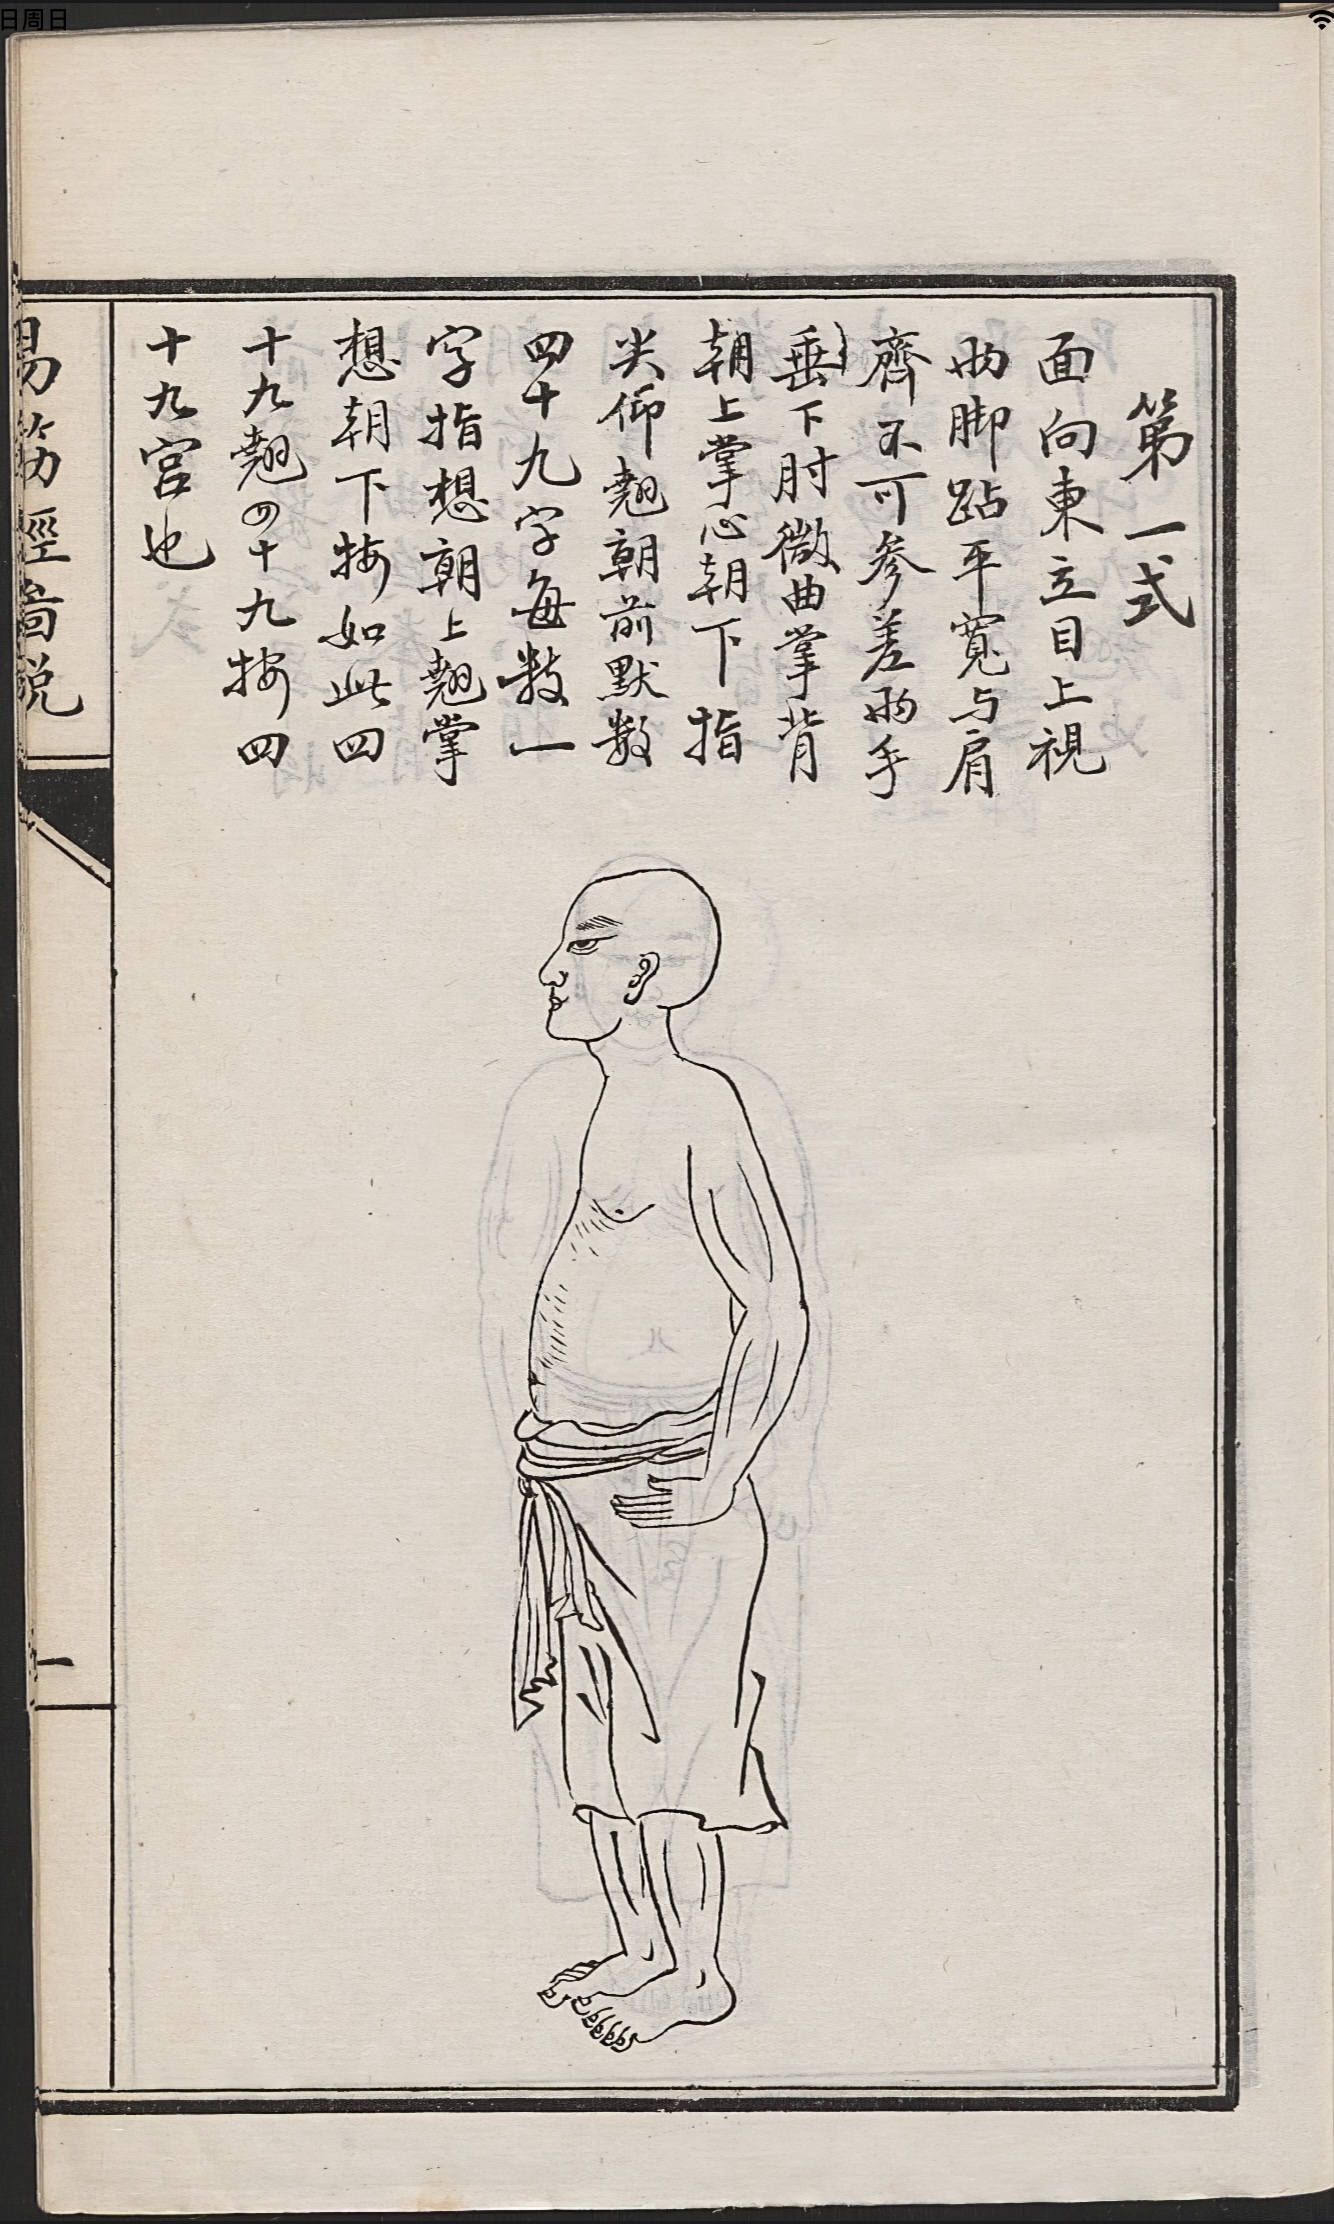 第一式
面向東立目上視
兩脚跕平寬与肩
齊不可参差兩手
垂下肘微曲掌背
朝上掌心朝下指
尖仰翹朝前默数
四十九字每数一
字指想朝上翹掌
想朝下按如此四
十九翹四十九按四
十九宫也
易筋經啚説
一